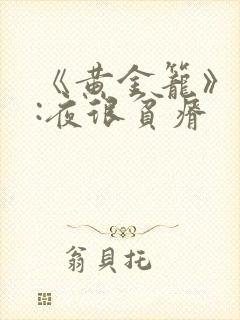 《黄金笼》
:夜很贫瘠
翁貝托